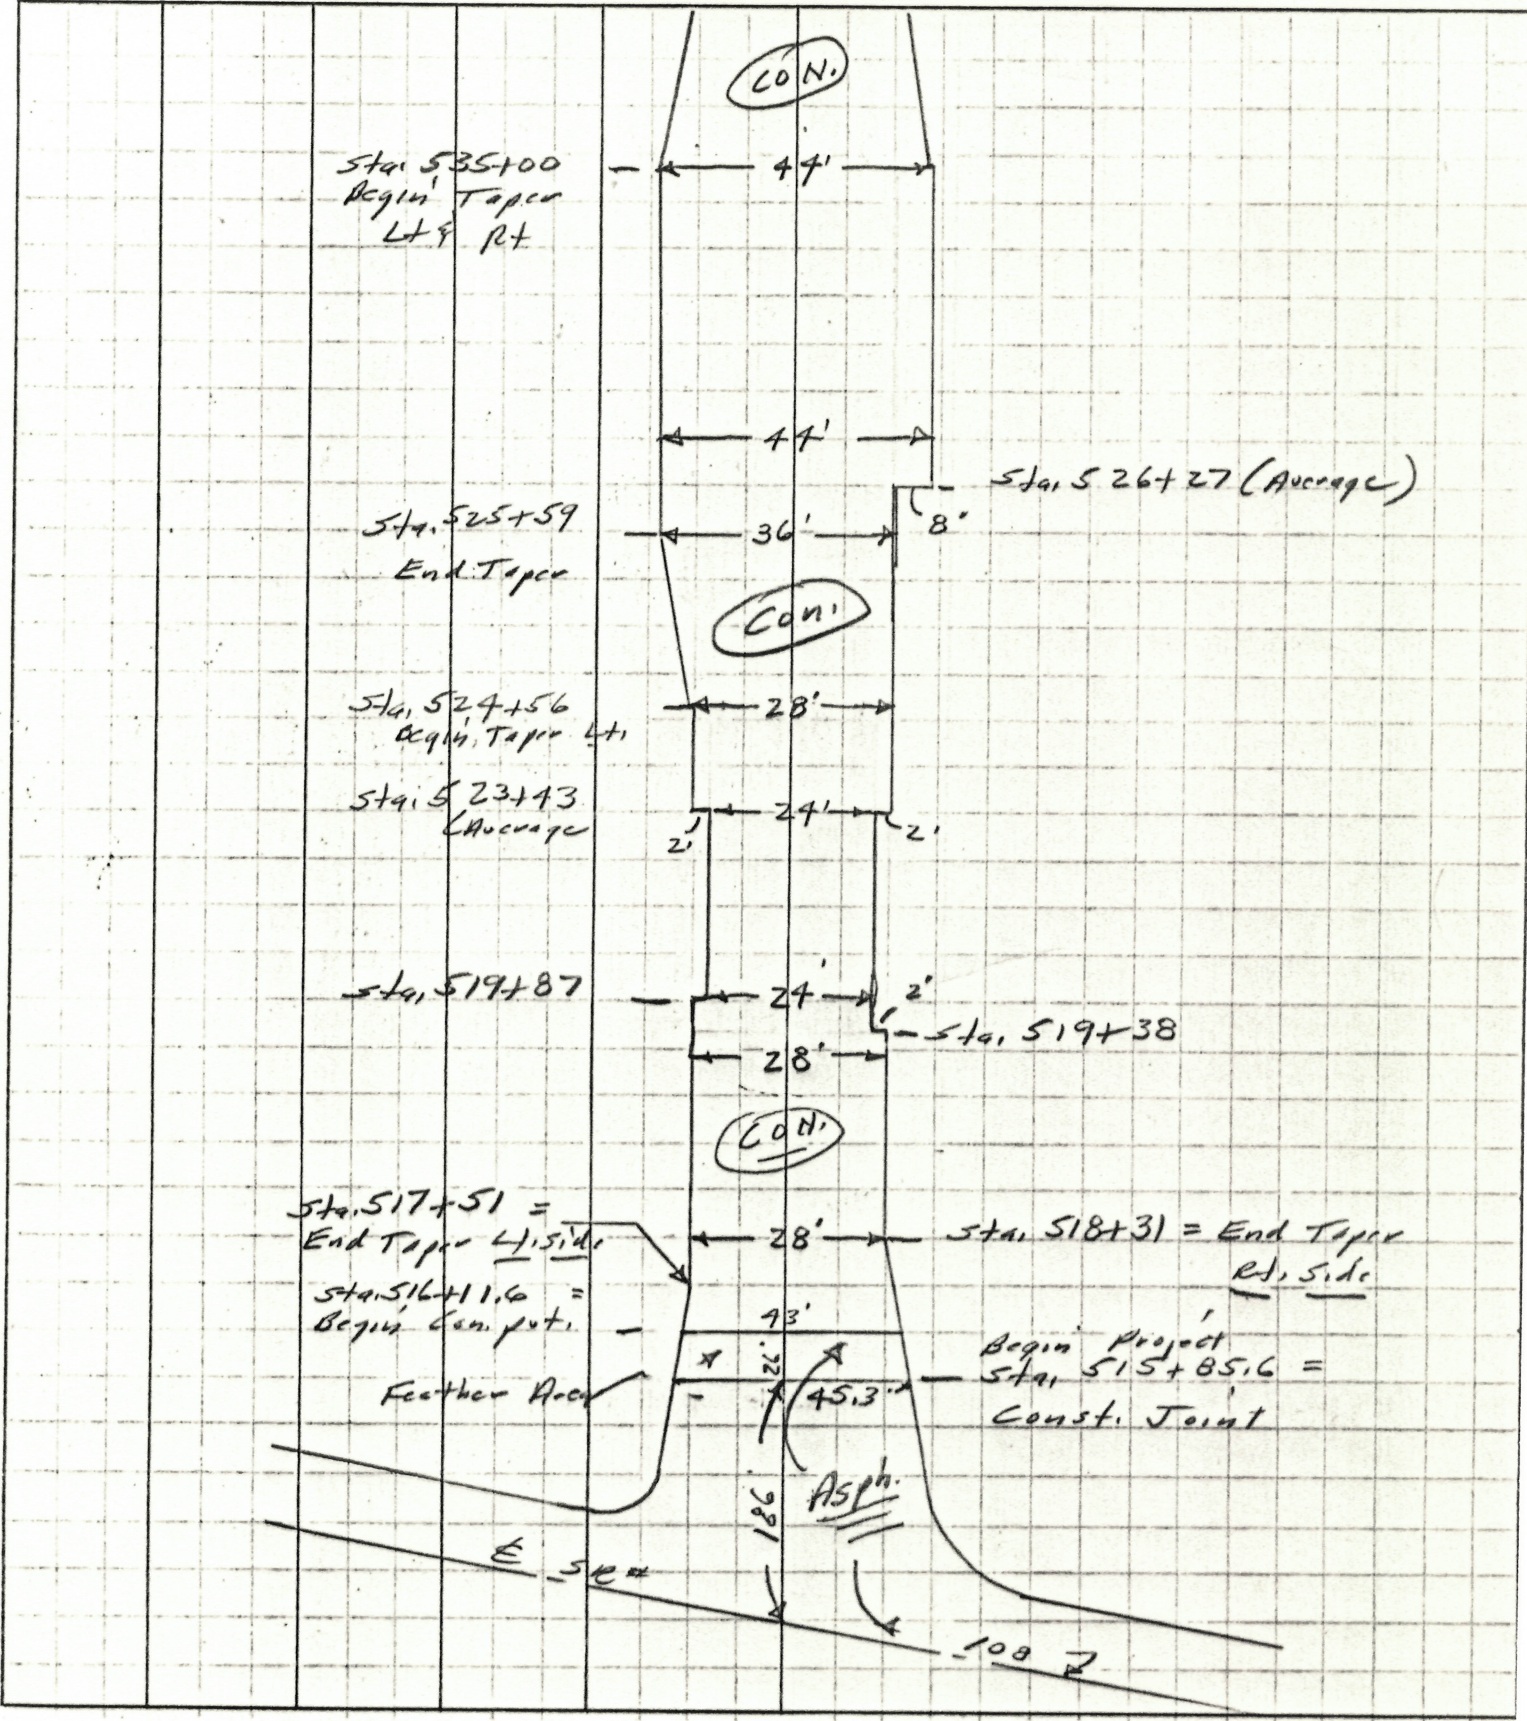 CON.
Sta. 535+00
44'
Begin Taper
Lt & Rt
44'
Sta. 526+27 (Average)
8'
Sta. 525+59
36'
End Taper
Con.
Sta. 524+56
28'
Begin Taper Lt.
Sta. 523+43
24'
(Average
2'
2'
Sta. 519+87
24'
2'
Sta. 519+38
28'
CON.
Sta. 517+51 =
End Taper Lt. Side
28'
Sta. 518+31 = End Taper
Rt. Side
Sta. 516+11.6 =
Begin Con. pvt.
43'
26'
Begin Project
Sta. 515+85.6 =
Const. Joint
Feather Area
45.3'
186'
Asph.
℄ SR #
108 Z